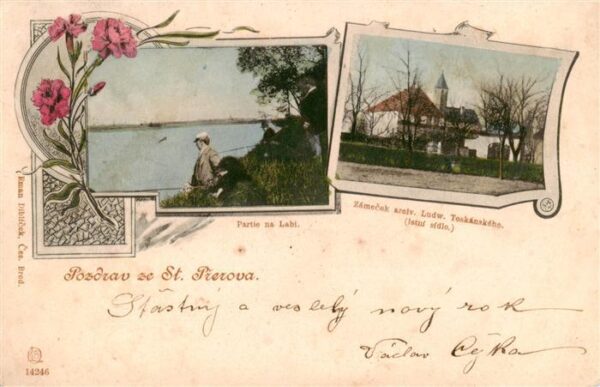 Partie na Labi.
Zámeček arciv. Ludw. Toskánského.
(letní sídlo.)
Eman Dibliček, Čes. Brod.
Pozdrav ze St. Přerova.
Šťastný a veselý nový rok
Václav
14246